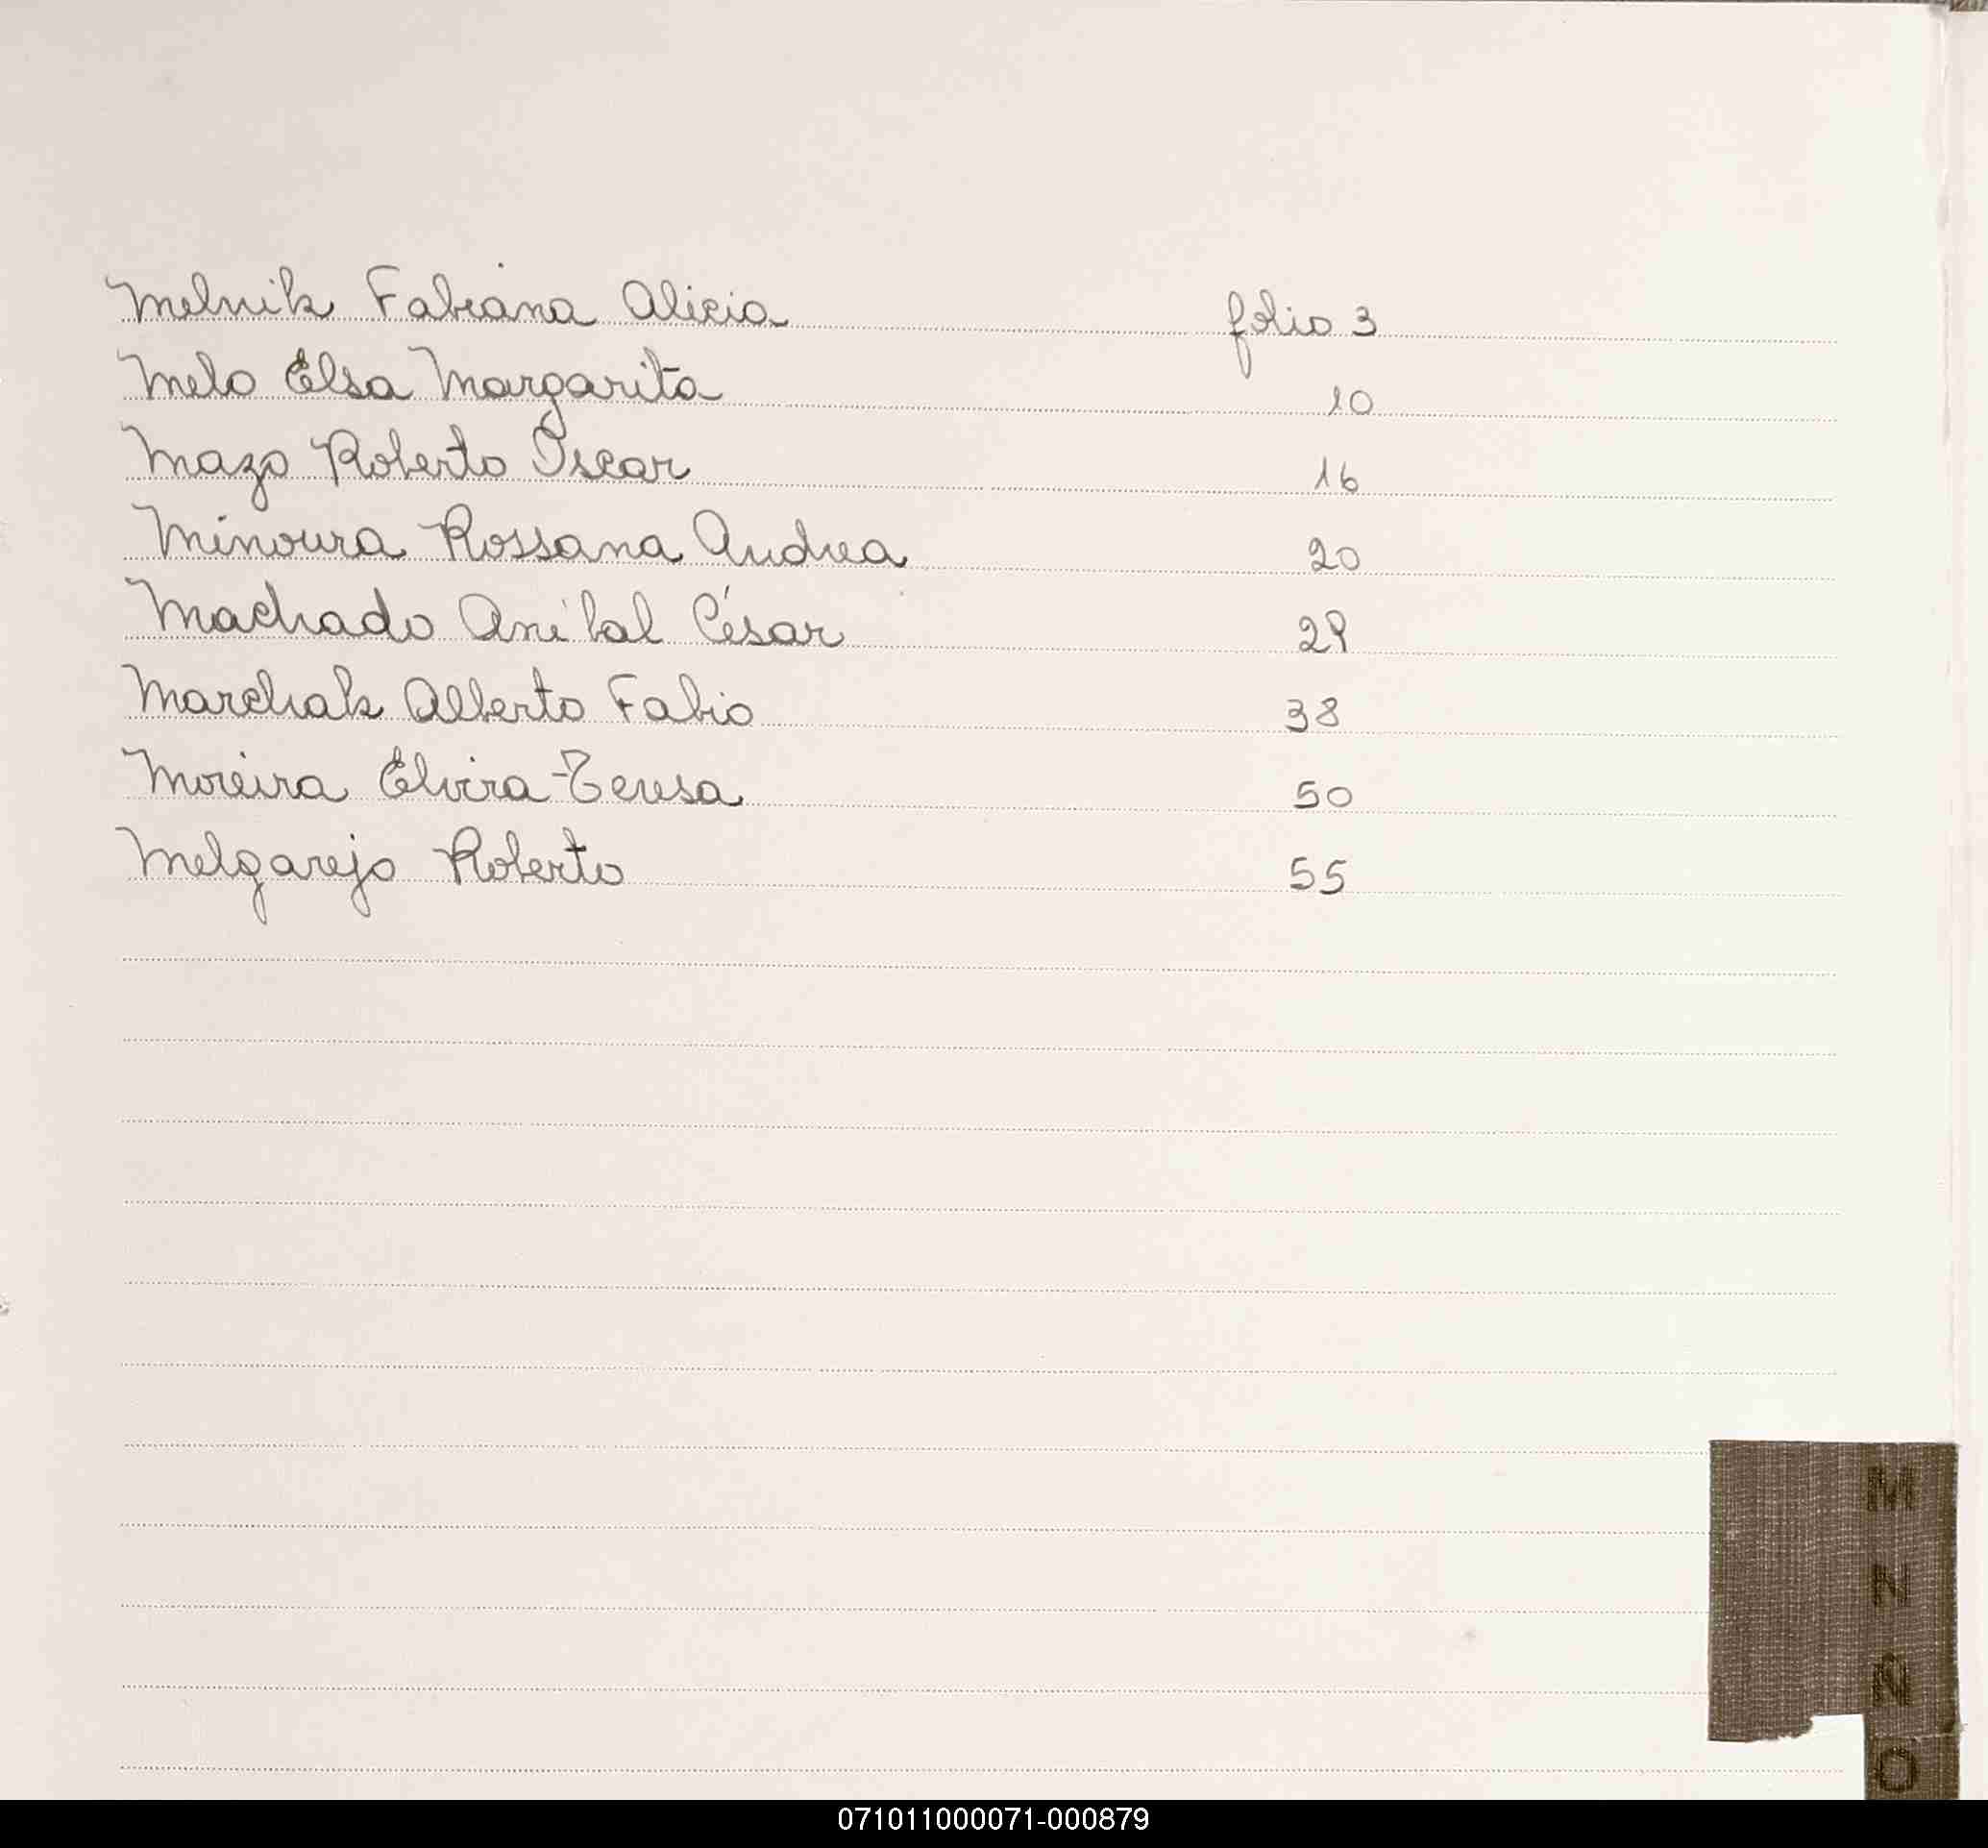 Melnik Fabiana Alicia folio 3
Melo Elsa Margarita 10
Mazo Roberto Oscar 16
Minoura Rossana Andrea 20
Machado Aníbal César 29
Marchak Alberto Fabio 38
Moreira Elvira Teresa 50
Melgarejo Roberto 55
M
N
Ñ
O
071011000071-000879